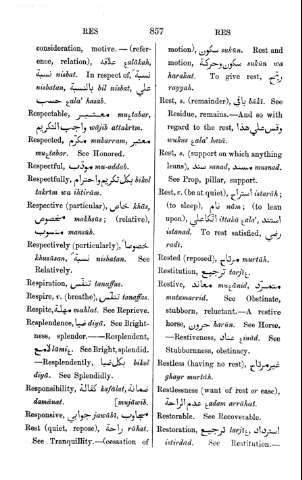 RES 857 RES
consideration, motive. — (refer-
ence, relation), علاقة ɛalākah,
نسبة nisbat. In respect of, نسبة
nisbatan, بالنسبة bil nisbat, علي
حسب ɛala' hasab.
Respectable, معتبر muɛtabar,
واجب التكريم wājib attakrīm.
Respected, مكرم mukarram, معتبر
muɛtabar. See Honored.
Respectful, مؤدب mu-addab.
Respectfully, بكل تكريم واحترام bikol
takrīm wa ihtirām.
Respective (particular), خاص khās,
مخصوص makhsūs; (relative),
منسوب mansūb.
Respectively (particularly), خصوصا
khusūsan, نسبة nisbatan. See
Relatively.
Respiration, تنفس tanaffus.
Respire, v. (breathe), تنفس tanaffas.
Respite, مهلة muhlat. See Reprieve.
Resplendence, ضيا diyā. See Bright-
ness, splendor. — Resplendent,
لامع lāmiɛ. See Bright, splendid.
— Resplendently, بكل ضيا bikol
diyā. See Splendidly.
Responsibility, كفالة kafālat, ضمانة
damānat. [mujāwib.
Responsive, جوابي jawābī, مجاوب
Rest (quiet, repose), راحة rāhat.
See Tranquillity.—(cessation of
motion), سكون sukūn. Rest and
motion, سكون وحركة sukūn wa
harakat. To give rest, ريح
rayyah.
Rest, s. (remainder), باقي bākī. See
Residue, remains.—And so with
regard to the rest, وقس علي هذا
wukus ɛala' hazā.
Rest, s. (support on which anything
leans), سند sanad, مسند musnad.
See Prop, pillar, support.
Rest, v. (be at quiet), استراح istarāh;
(to sleep), نام nām; (to lean
upon), اتكا علي ittakā ɛala', استند
istanad. To rest satisfied, رضي
radī.
Rested (reposed), مرتاح murtāh.
Restitution, ترجيع tarjīɛ.
Restive, معاند muɛānid, متمرد
mutamarrid. See Obstinate,
stubborn, reluctant.—A restive
horse, حرون harūn. See Horse.
—Restiveness, عناد ɛinād. See
Stubbornness, obstinacy.
Restless (having no rest), غير مرتاح
ghayr murtāh.
Restlessness (want of rest or ease),
عدم الراحة ɛadam arrāhat.
Restorable. See Recoverable.
Restoration, ترجيع tarjīɛ, استرداد
istirdād. See Restitution.—